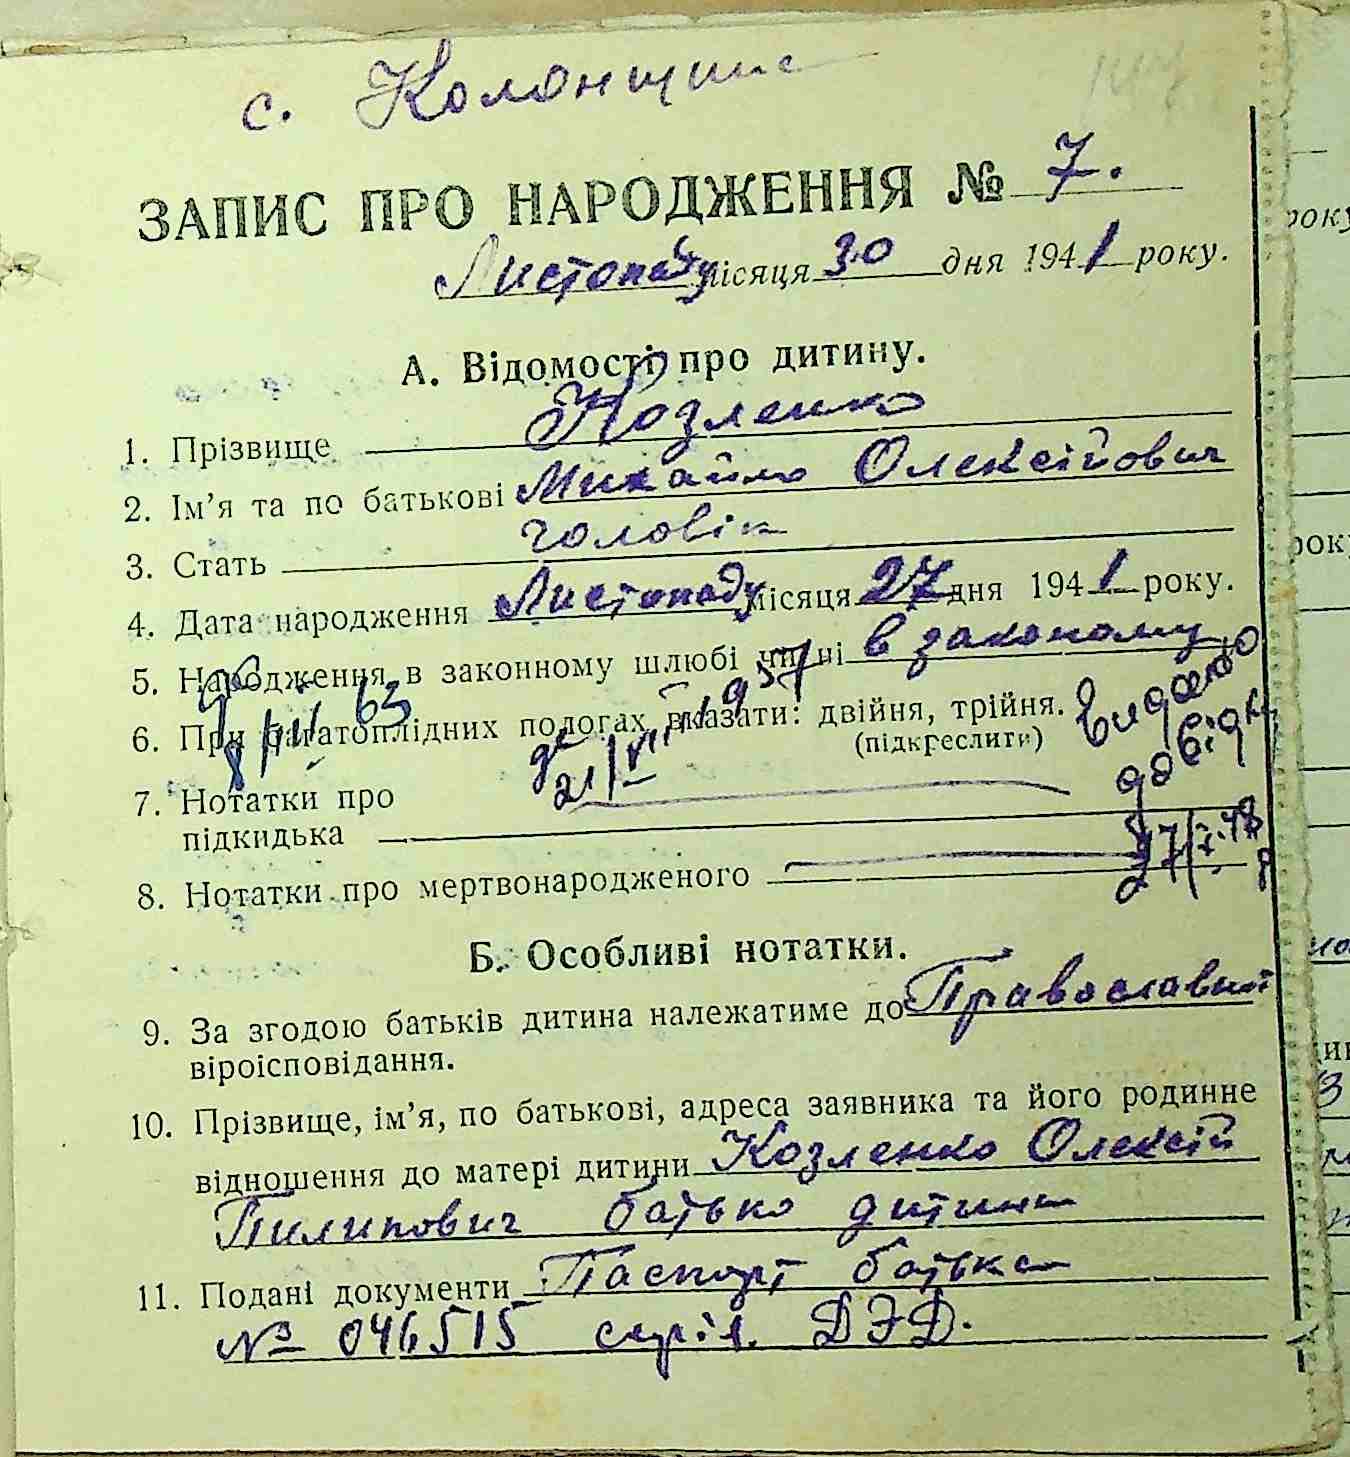 с. Колонщине
ЗАПИС ПРО НАРОДЖЕННЯ № 7.
Листопаду місяця 30 дня 1941 року.
А. Відомості про дитину.
1. Прізвище Козленко
2. Ім’я та по батькові Михайло Олексійович
3. Стать чоловік
4. Дата народження Листопаду місяця 27 дня 1941 року.
5. Народження в законному шлюбі чи ні в законому
6. При багатоплідних пологах вказати: двійня, трійня.
(підкреслити)
Видано
7. Нотатки про
підкидька
8. Нотатки про мертвонародженого
Б. Особливі нотатки.
9. За згодою батьків дитина належатиме до Православної
віроісповідання.
10. Прізвище, ім’я, по батькові, адреса заявника та його родинне
відношення до матері дитини Козленко Олексій
Пилипович батько дитини
11. Подані документи Паспорт батька
№ 046515 серія. ДЭД.